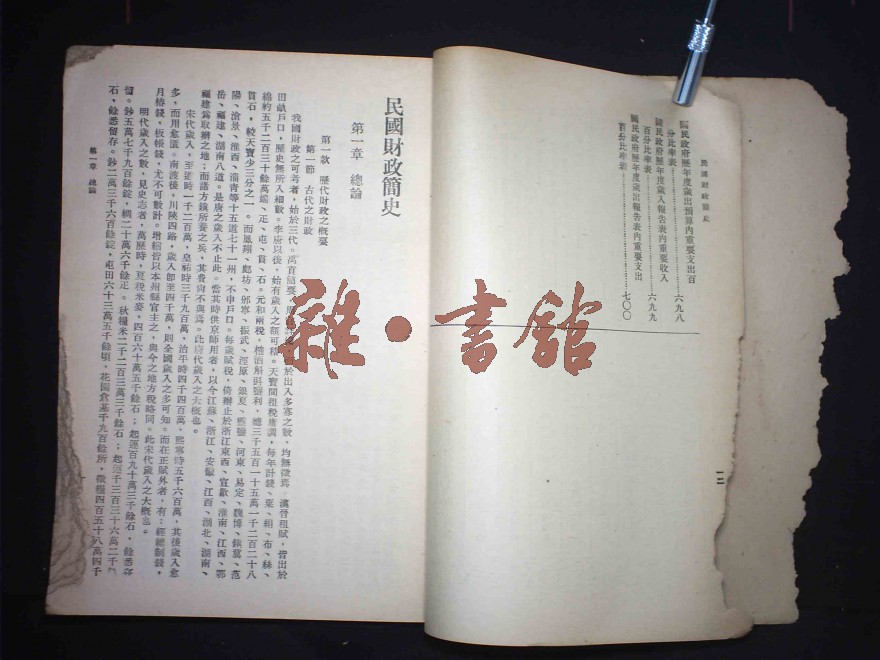 民國財政簡史
國民政府歷年度歲出預算內重要支出百
分比率表……六九八
國民政府歷年度歲入報告表內重要收入
百分比率表……六九九
國民政府歷年度歲出報告表內重要支出
百分比率表……七〇〇
一二
民國財政簡史
第一章 總論
第一款 歷代財政之概要
第一節 古代之財政
我國財政之可考者，始於三代。禹貢 於出入多寡之數，均無徵焉 漢晉租賦，皆出於
田畝戶口，歷史無所入細數。李唐以後，始有歲入之額可稽。天寶間租稅庸調，每年計錢、粟、絹、布、絲、
綿約五千二百三十餘萬端、疋、屯、貫、石。元和兩稅，榷酒斛斗鹽利，總三千五百一十五萬一千二百二十八
貫石，較天寶少三分之一。而鳳翔、鄜坊、邠寧、振武、涇原、銀夏、靈鹽、河東、易定、魏博、鎮冀、范
陽、滄景、淮西、淄青等十五道七十一州，不申戶口。每歲賦稅，倚辦止於浙江東西、宣歙、淮南、江西、鄂
岳、福建、湖南八道。是唐之歲入不止此。當其時供京師用者，以今江蘇、浙江、安徽、江西、湖北、湖南、
福建爲取辦之地；而諸方鎮所養之兵，其費尙不與焉。此唐代歲入之大概也。
宋代歲入，至道時一千二百萬，皇祐時三千九百萬，治平時四千四百萬，熙寧時五千六百萬，其後歲入愈
多，而用愈匱。南渡後，川陝四路，歲入卽至四千萬，則全國歲入之多可知。而在正賦外者，有：經總制錢，
月樁錢，板帳錢，尤不可數計。增細皆以本州縣官主之，與今之地方稅略同。此宋代歲入之大概也。
明代歲入之數，見史志者，萬歷時，夏稅米麥，四百六十萬五千餘石；起運百九十萬三千餘石，餘悉存
留。鈔五萬七千九百餘錠，絹二十萬六千餘疋。秋糧米二千二百三萬三千餘石；起運千三百三十六萬二千
石，餘悉留存。鈔二萬三千六百餘錠，屯田六十三萬五千餘頃，花園倉基千九百餘所，徵糧四百五十八萬四千
第一章 總論
雜·書館